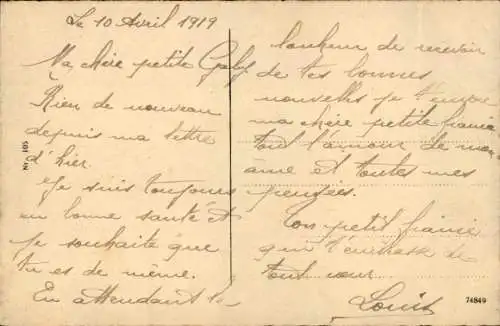 Le 10 Avril 1919
Ma chère petite Gaby
Rien de nouveau
depuis ma lettre
d'hier.
Je suis toujours
en bonne santé et
je souhaite que
tu es de même.
En attendant le
bonheur de recevoir
de tes bonnes
nouvelles je t'envoie
ma chère petite fiancée
tout l'amour de mon
âme et toutes mes
pensées.
Ton petit fiancé
qui t'embrasse de
tout cœur
Louis
No 105
74849